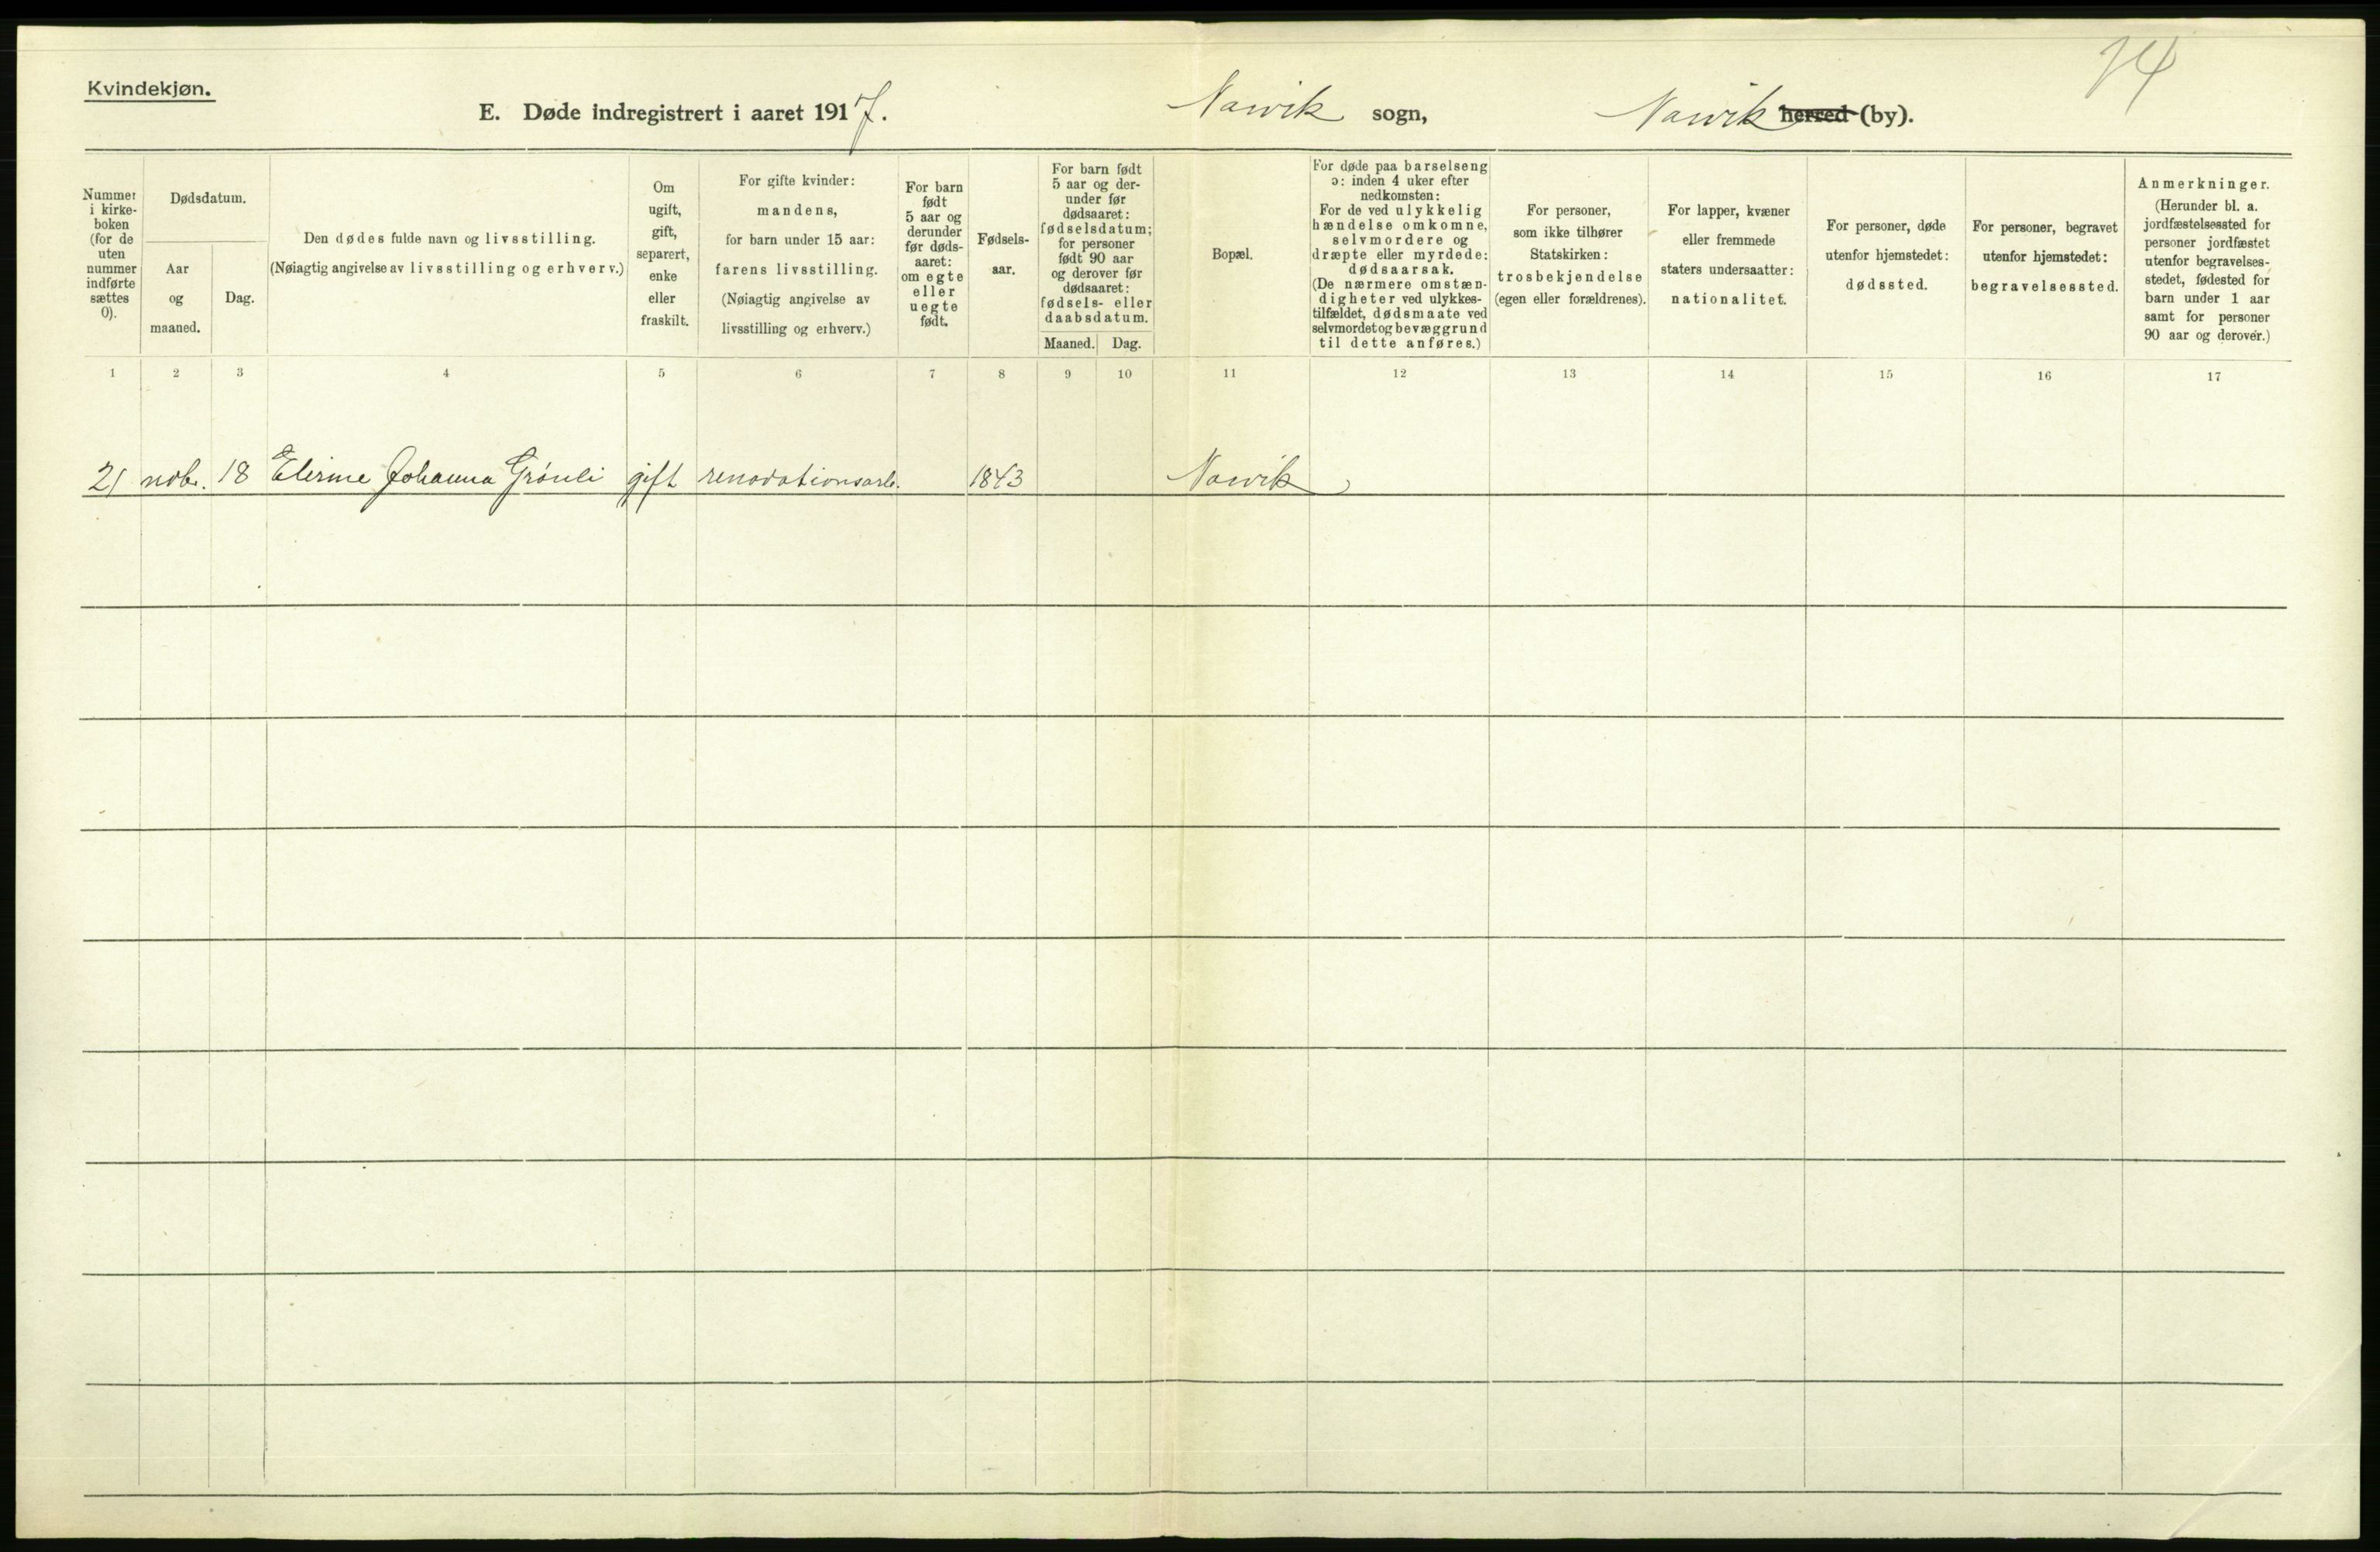 74
Kvindekjøn.
E. Døde indregistrert i aaret 1917. Narvik sogn, Narvik herred (by).
Nummer
i kirke-
boken
(for de
uten
nummer
indførte
sættes
0).
Dødsdatum.
Aar
og
maaned.
Dag.
Den dødes fulde navn og livsstilling.
(Nøiagtig angivelse av livsstilling og erhverv.)
Om
ugift,
gift,
separert,
enke
eller
fraskilt.
For gifte kvinder:
mandens,
for barn under 15 aar:
farens livsstilling.
(Nøiagtig angivelse av
livsstilling og erhverv.)
For barn
født
5 aar og
derunder
før døds-
aaret:
om egte
eller
uegte
født.
Fødsels-
aar.
For barn født
5 aar og der-
under før
dødsaaret:
fødselsdatum;
for personer
født 90 aar
og derover før
dødsaaret:
fødsels- eller
daabsdatum.
Maaned. Dag.
Bopæl.
For døde paa barselseng
ɔ: inden 4 uker efter
nedkomsten:
For de ved ulykkelig
hændelse omkomne,
selvmordere og
dræpte eller myrdede:
dødsaarsak.
(De nærmere omstæn-
digheter ved ulykkes-
tilfældet, dødsmaate ved
selvmordet og bevæggrund
til dette anføres.)
For personer,
som ikke tilhører
Statskirken:
trosbekjendelse
(egen eller forældrenes).
For lapper, kvæner
eller fremmede
staters undersaatter:
nationalitet.
For personer, døde
utenfor hjemstedet:
dødssted.
For personer, begravet
utenfor hjemstedet:
begravelsessted.
Anmerkninger.
(Herunder bl. a.
jordfæstelsessted for
personer jordfæstet
utenfor begravelses-
stedet, fødested for
barn under 1 aar
samt for personer
90 aar og derover.)
1 2 3 4 5 6 7 8 9 10 11 12 13 14 15 16 17
21 novbr. 18 Johanna Grönli gift renovationsarb. 1843 Narvik